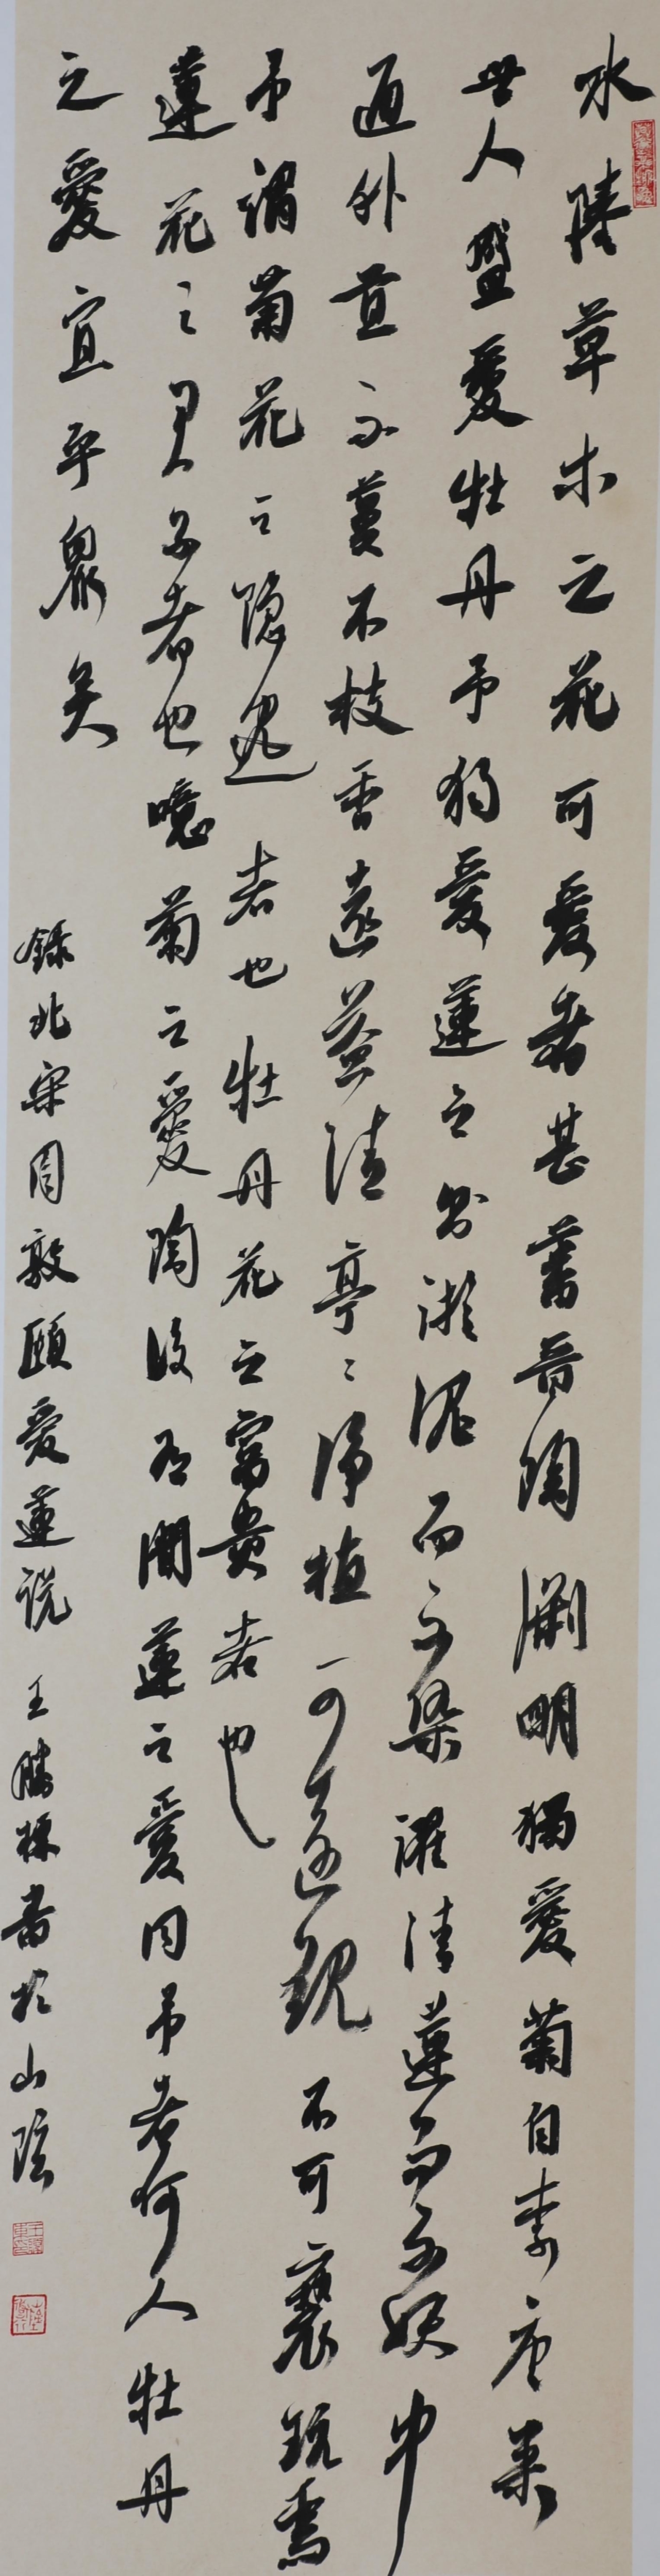 水陸草木之花可愛者甚蕃晉陶淵明獨愛菊自李唐来
世人盛愛牡丹予獨愛蓮之出淤泥而不染濯清蓮而不妖中
通外直不蔓不枝香遠益清亭〻淨植可遠觀不可褻玩焉
予謂菊花之隱逸者也牡丹花之富貴者也
蓮花之君子者也噫菊之愛陶後有聞蓮之愛同予者何人牡丹
之愛宜乎眾矣
録北宋周敦頤愛蓮説王勝棟書於山陰